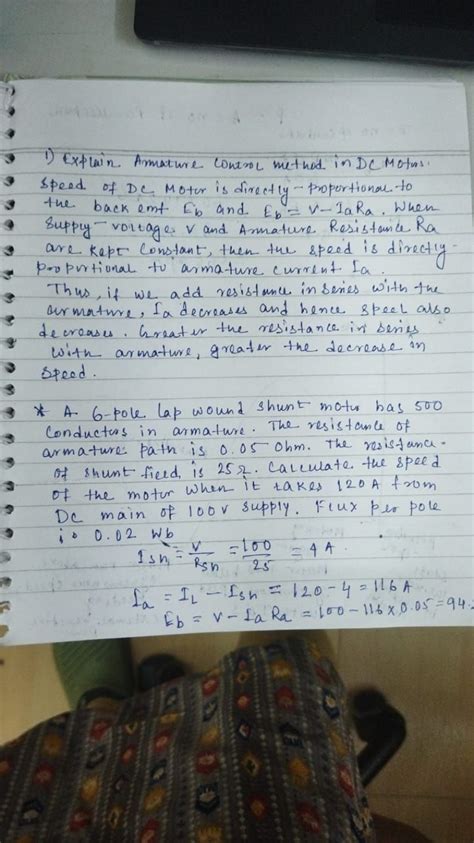 1) Explain Armature Control method in DC Motors.
Speed of DC Motor is directly-proportional to
the back emf Eb and Eb = V - IaRa. When
Supply-voltages V and Armature Resistance Ra
are kept Constant, then the speed is directly-
proportional to armature current Ia.
Thus, if we add resistance in series with the
armature, Ia decreases and hence speed also
decreases. Greater the resistance in series
with armature, greater the decrease in
Speed.
* A 6-pole lap wound shunt motor has 500
Conductors in armature. The resistance of
armature path is 0.05 Ohm. The resistance
of shunt field is 25Ω. Calculate the speed
of the motor when it takes 120A from
DC main of 100V supply. Flux per pole
is 0.02 Wb
Ish = V/Rsh = 100/25 = 4A.
Ia = IL - Ish = 120 - 4 = 116A
Eb = V - IaRa = 100 - 116 x 0.05 = 94.